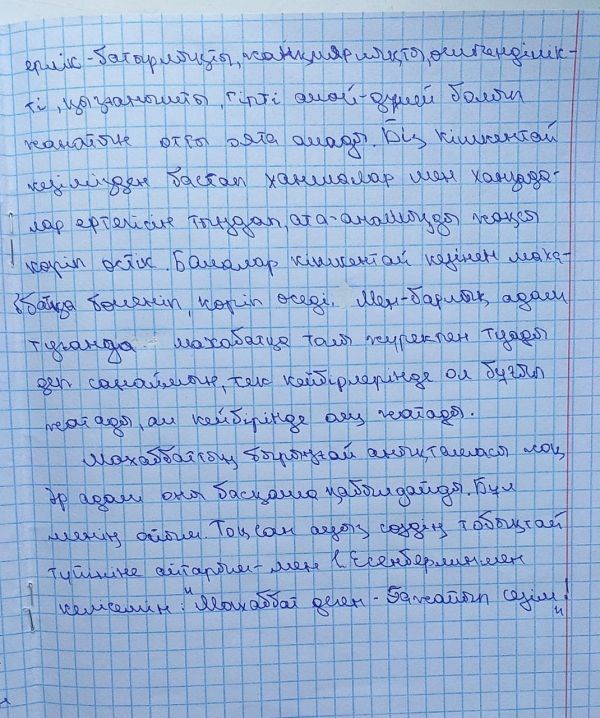 ерлік-батырлықты, жанқиярлықты, өшпенділік-
ті, қызғанышты, тіпті алай-дүлей болып
жанатын отты оята алады. Біз кішкентай
кезімізден бастап ханшалар мен ханзада-
лар ертегісін тыңдап, ата-анамызды жақсы
көріп өстік. Балалар кішкентай кезінен маха-
ббатқа бөленіп, көріп өседі. Мен-барлық адам
туғанда махаббатқа толы жүрекпен туады
деп санаймын, тек кейбірлерінде ол бұғып
жатады, ал кейбірінде ояу жатады.
Махаббаттың бірыңғай анықтамасы жоқ
Әр адам оны басқаша қабылдайды. Бұл
менің ойым. Тоқсан ауыз сөздің тобықтай
түйініне айтарым - мен І.Есенберлинмен
келісемін: "Махаббат деген - ғажайып сезім!"